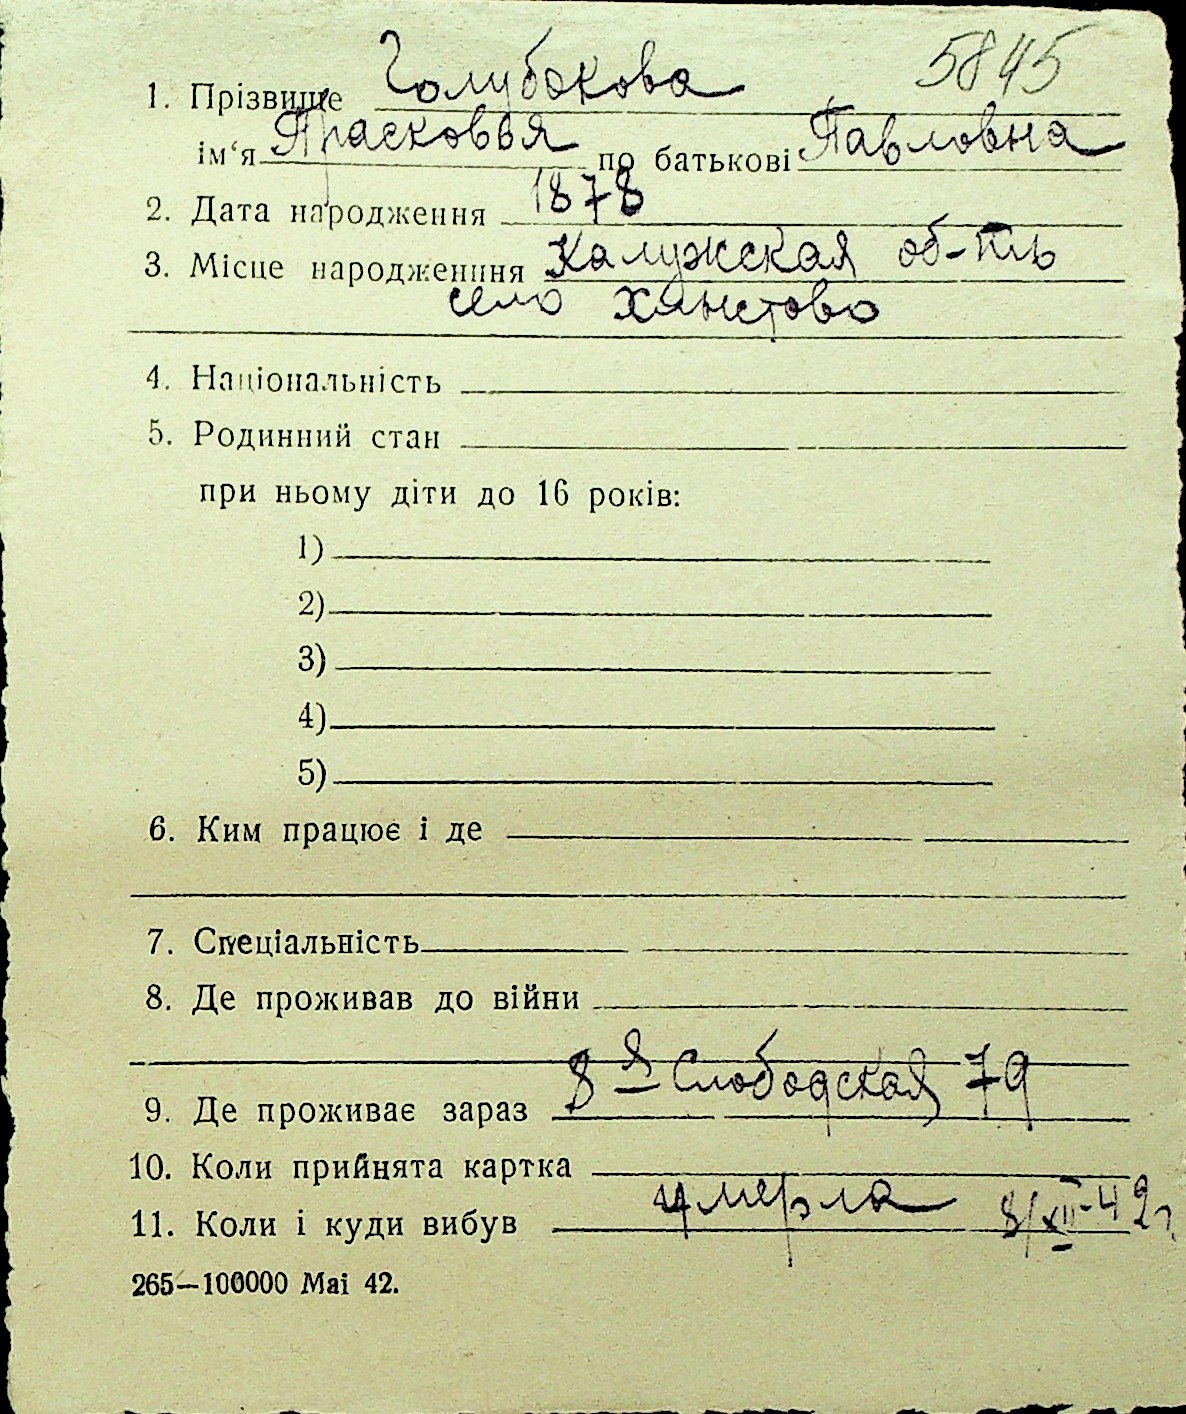 5845
1. Прізвище Голубокова
ім‘я Прасковья по батькові Павловна
2. Дата народження 1878
3. Місце народженння Калужская об-ть
село
4. Національність
5. Родинний стан
при ньому діти до 16 років:
1)
2)
3)
4)
5)
6. Ким працює і де
7. Спеціальність
8. Де проживав до війни
9. Де проживає зараз 8 я Слободская 79
10. Коли прийнята картка
11. Коли і куди вибув умерла 8/XII-42г.
265—100000 Mai 42.